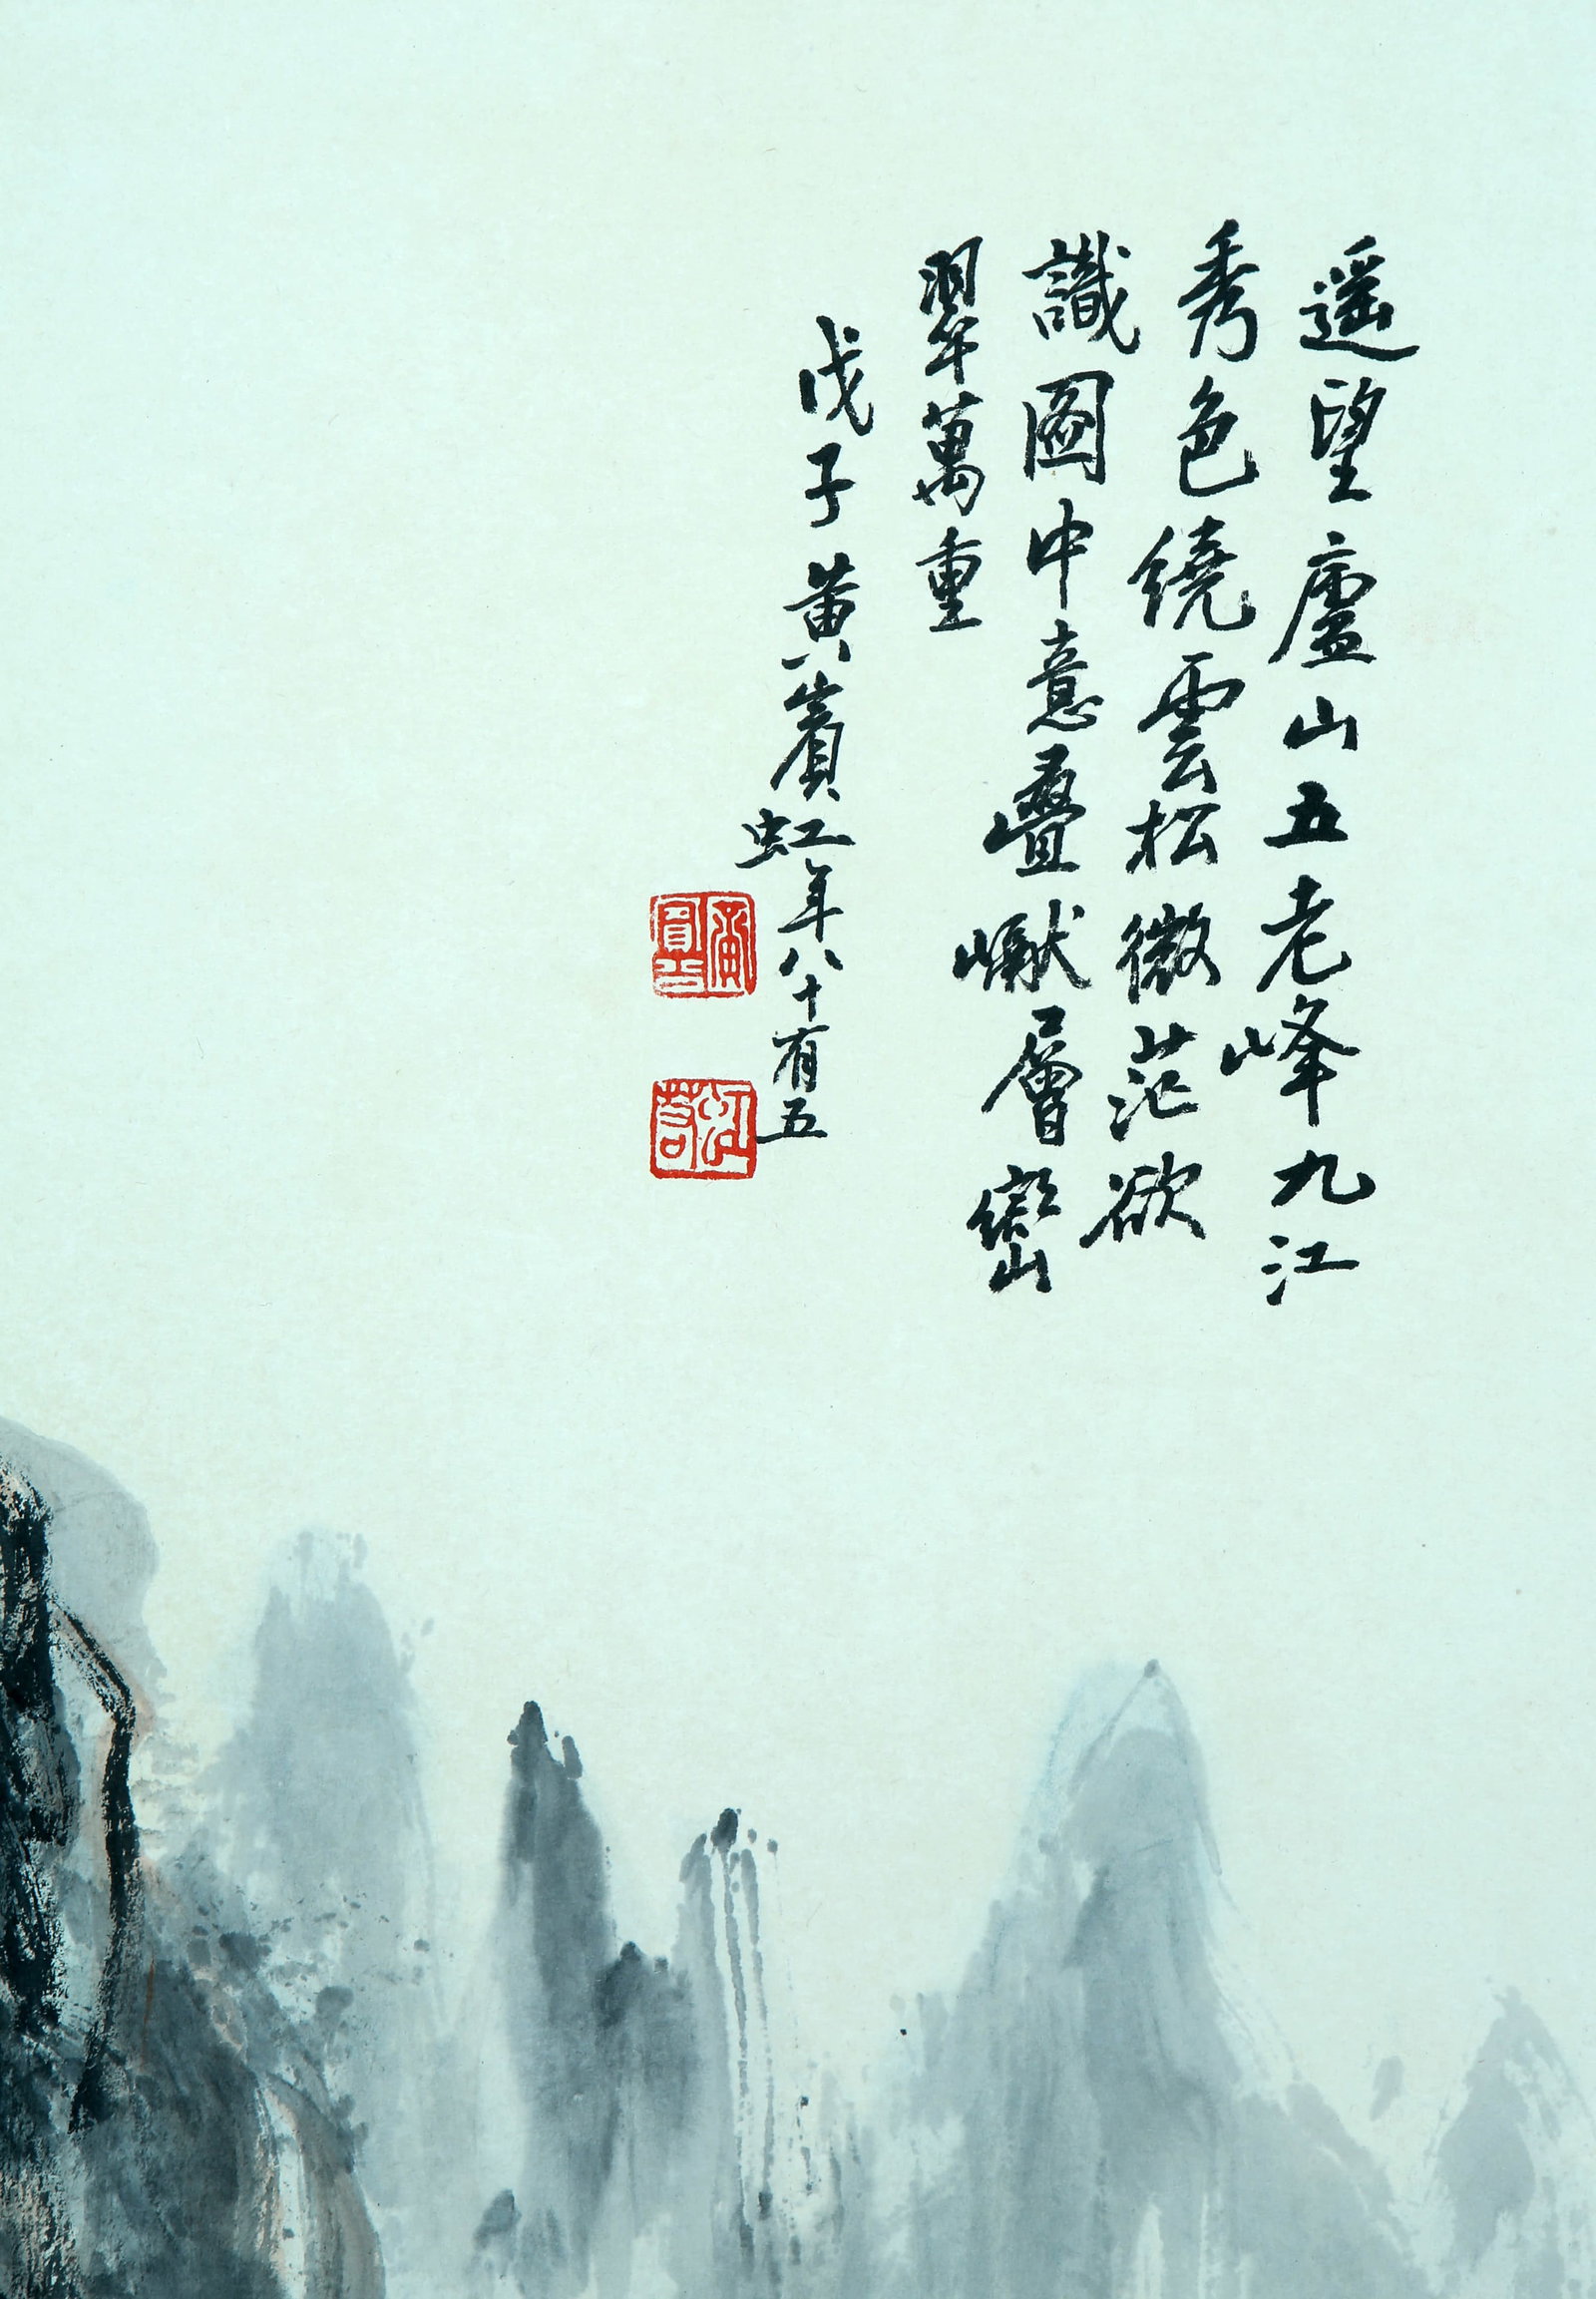 遥望廬山五老峰九江
秀色繞雲松微茫欲
識圖中意疊巘層巒
翠萬重
戊子黃賓虹年八十有五
黃賓虹